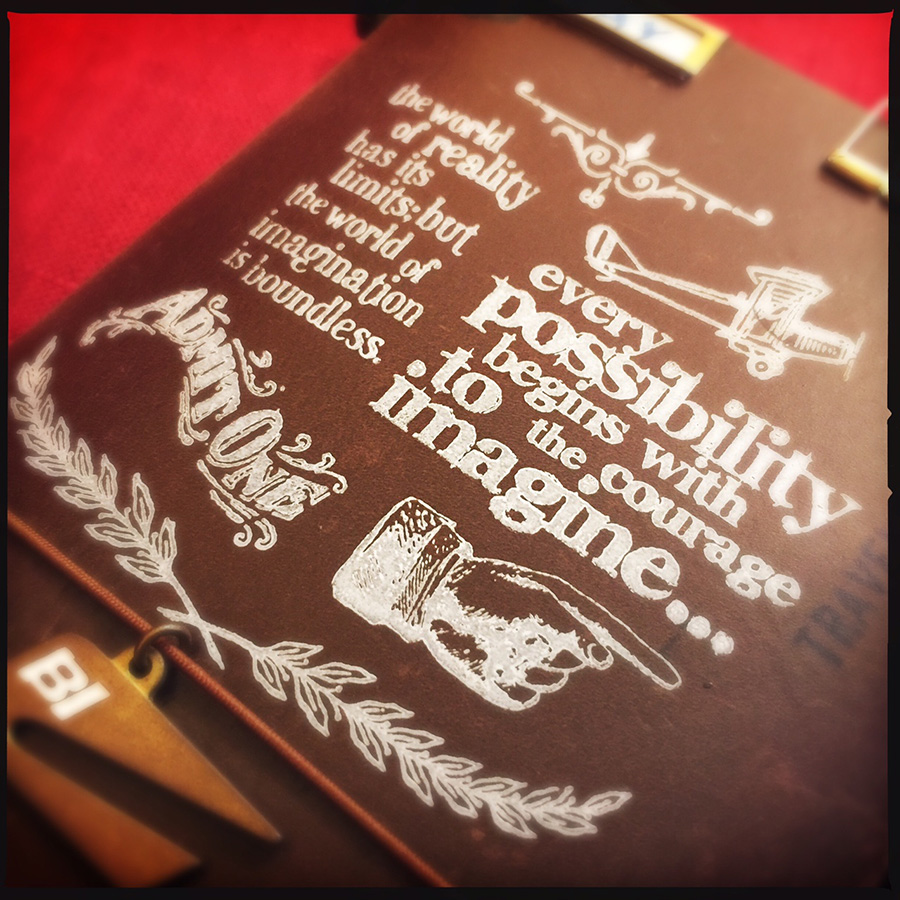 the world
of reality
has its
limits; but
the world of
imagination
is boundless.
ADMIT ONE
every
possibility
begins with
the courage
to
imagine...
BI